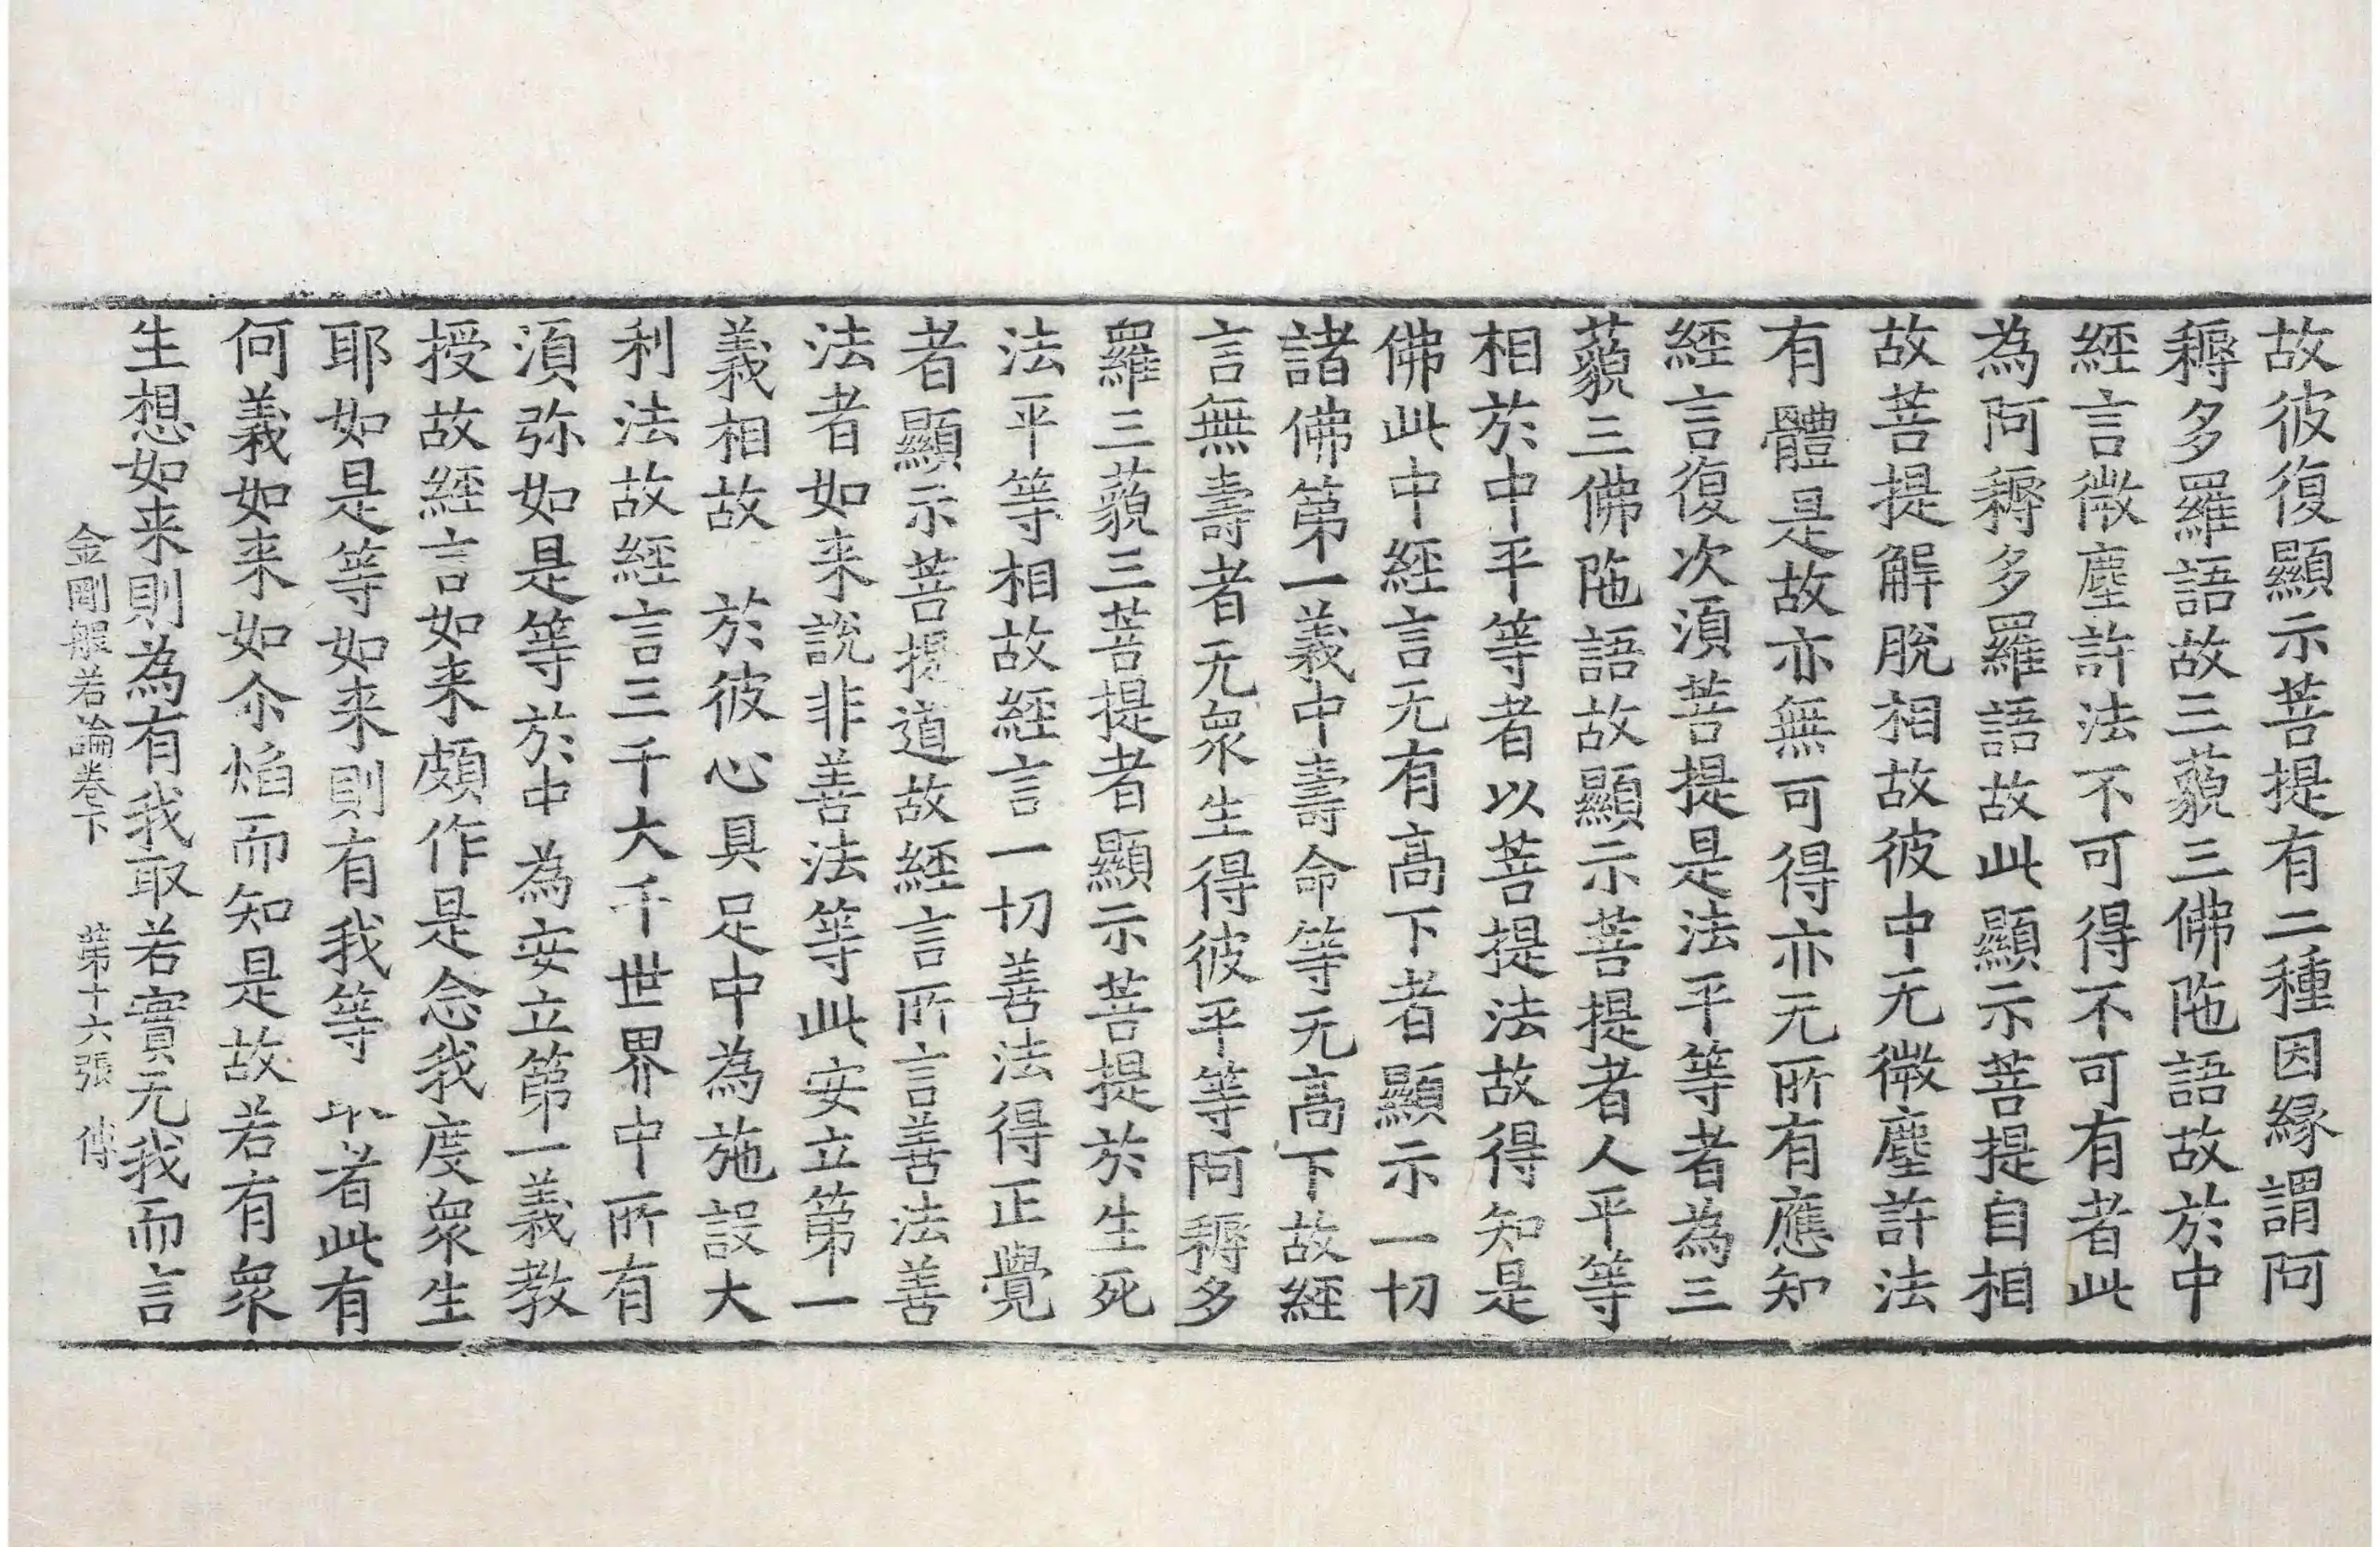 故彼復顯示菩提有二種因緣謂阿
耨多羅語故三藐三佛陁語故於中
經言微塵許法不可得不可有者此
為阿耨多羅語故此顯示菩提自相
故菩提解脫相故彼中无微塵許法
有體是故亦無可得亦无所有應知
經言復次湏菩提是法平等者為三
藐三佛陁語故顯示菩提者人平等
相於中平等者以菩提法故得知是
佛此中經言无有高下者顯示一切
諸佛第一義中壽命等无高下故經
言無壽者无衆生得彼平等阿耨多
羅三藐三菩提者顯示菩提於生死
法平等相故經言一切善法得正覺
者顯示菩提道故經言所言善法善
法者如来說非善法等此安立第一
義相故 於彼心具足中為施設大
利法故經言三千大千世界中所有
湏弥如是等於中為安立第一義教
授故經言如来頗作是念我度衆生
耶如是等如来則有我等 者此有
何義如来如尒焰而知是故若有衆
生想如来則為有我取若實无我而言
金剛般若論卷下 第十六張 傅